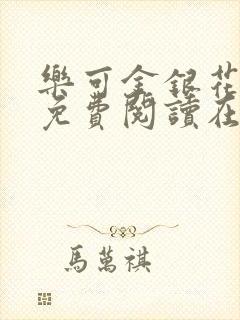 樂可金銀花
免費閱讀在
馬萬祺